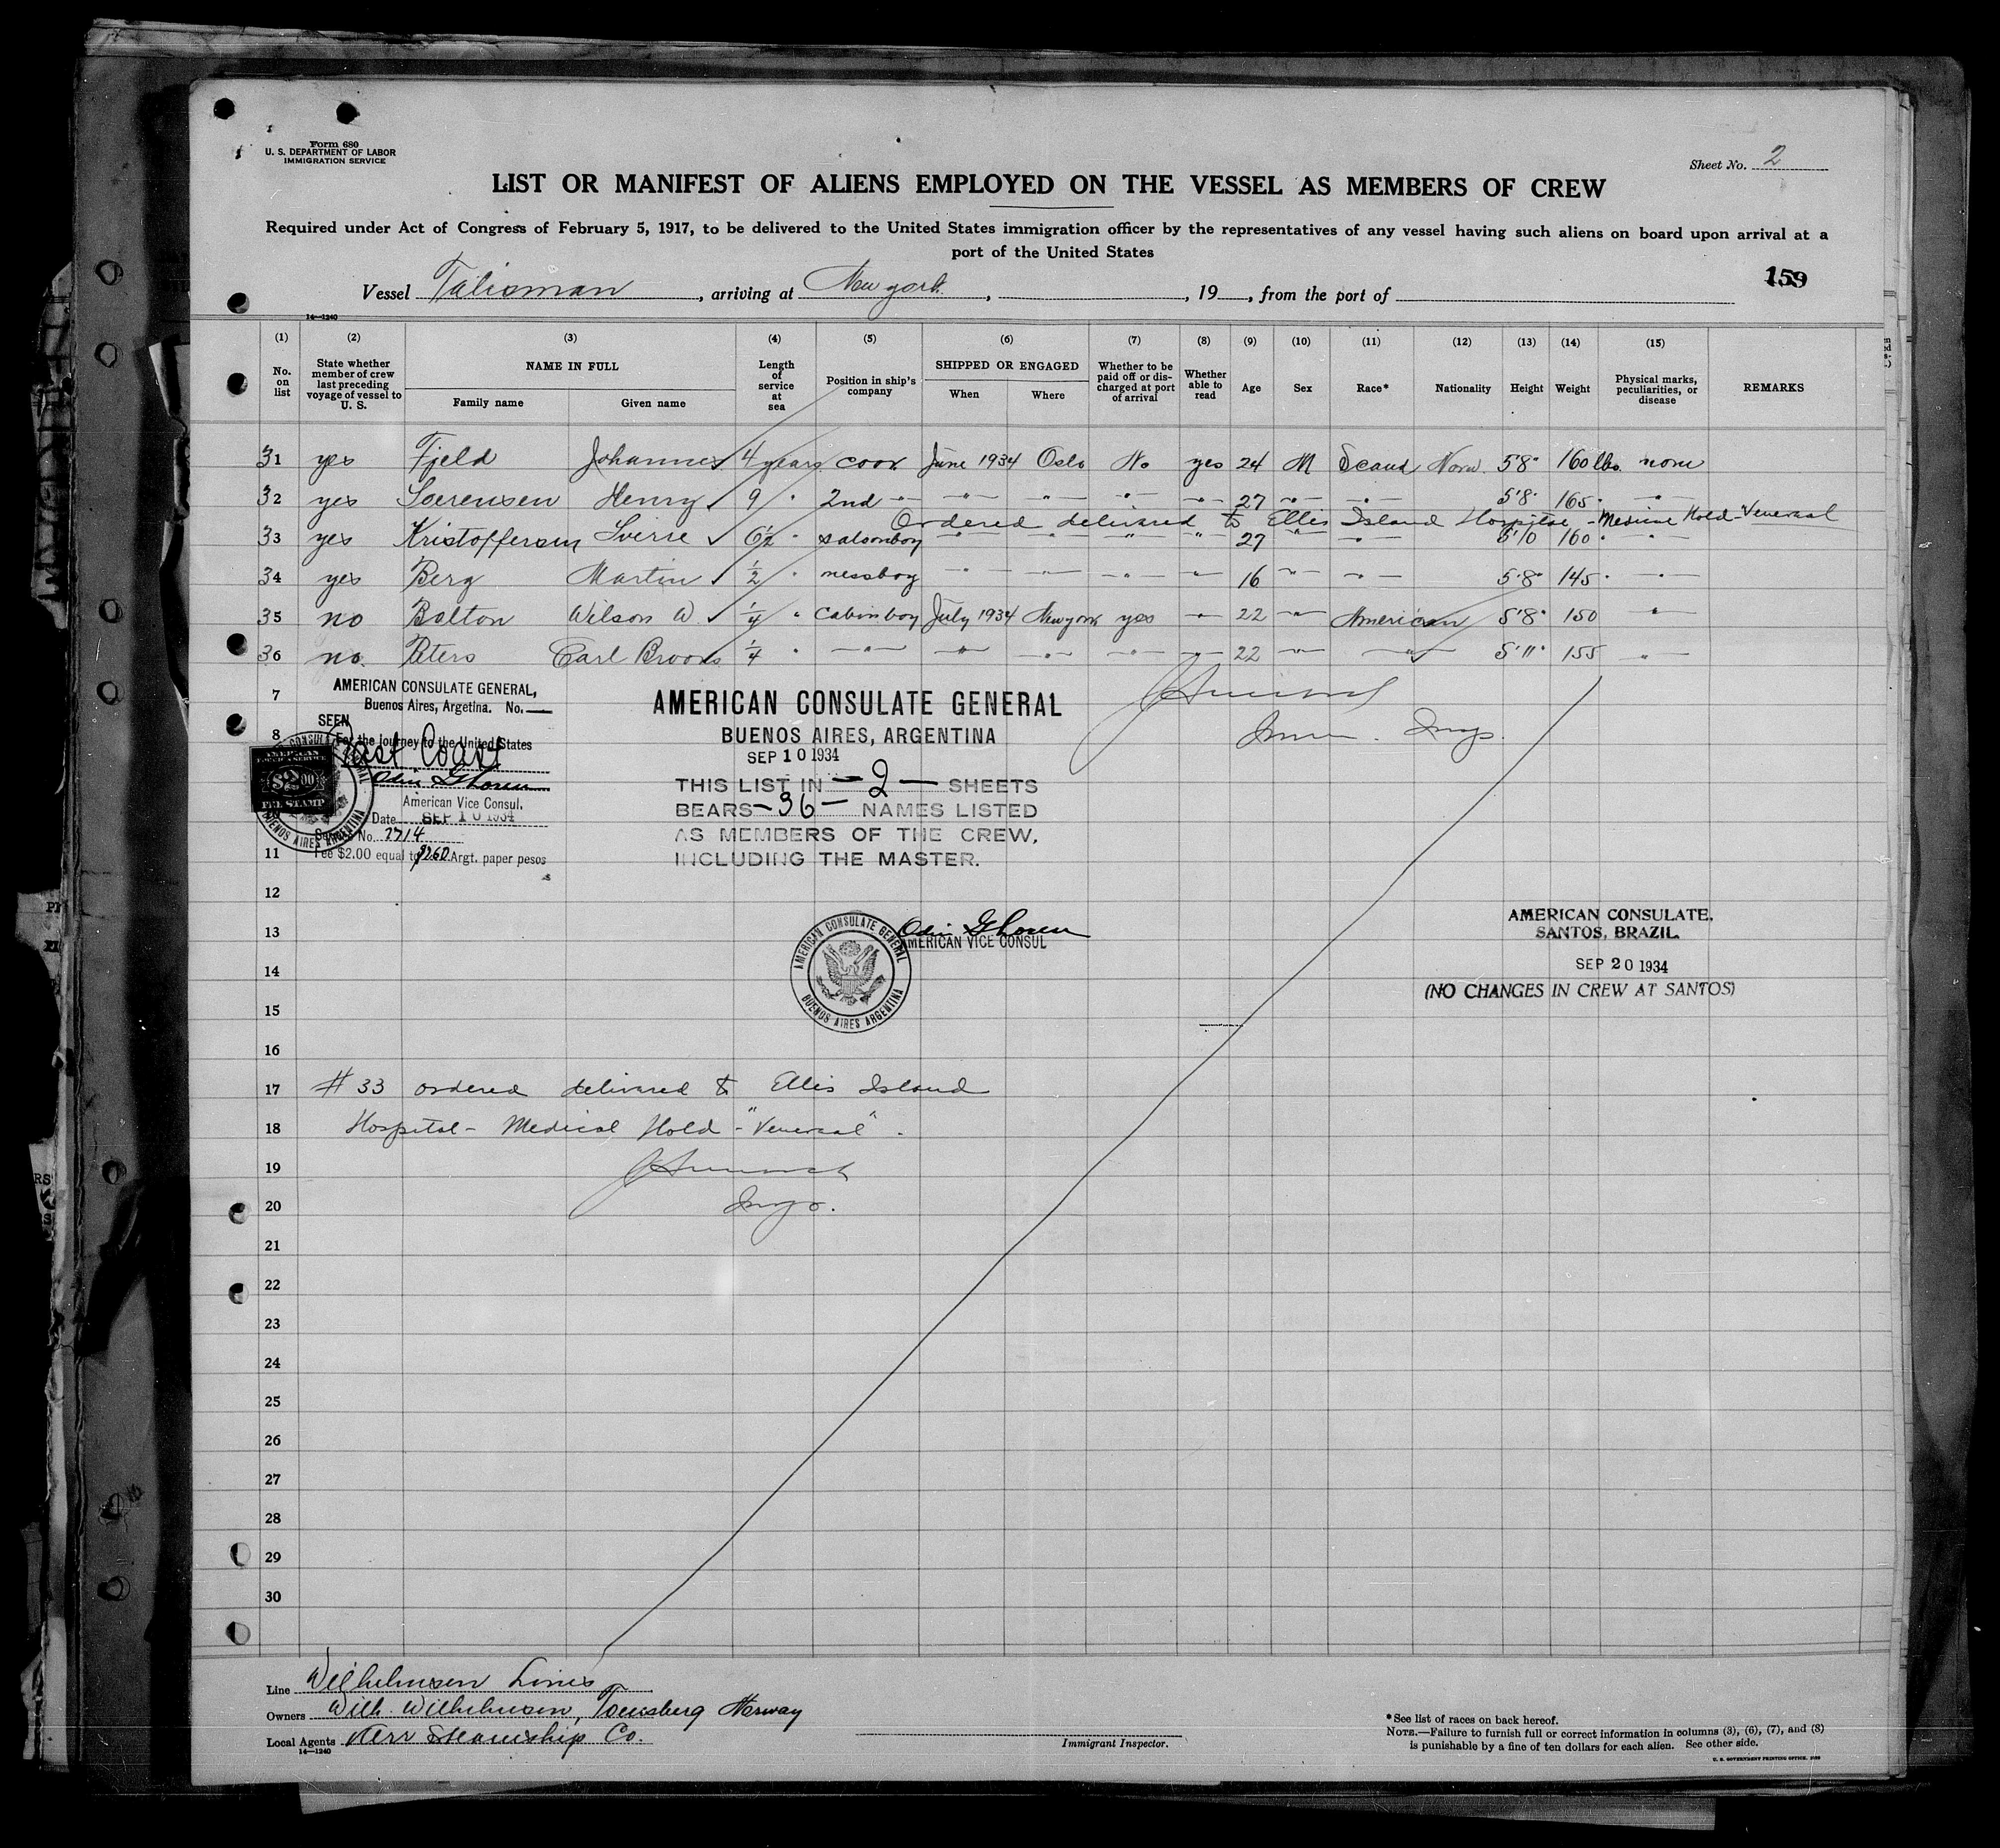 Form 680
U. S. DEPARTMENT OF LABOR
IMMIGRATION SERVICE
Sheet No. 2
LIST OR MANIFEST OF ALIENS EMPLOYED ON THE VESSEL AS MEMBERS OF CREW
Required under Act of Congress of February 5, 1917, to be delivered to the United States immigration officer by the representatives of any vessel having such aliens on board upon arrival at a
port of the United States
159
Vessel Talisman, arriving at New york, , 19 , from the port of
14—1240
(1) (2) (3) (4) (5) (6) (7) (8) (9) (10) (11) (12) (13) (14) (15)
No. on list State whether member of crew last preceding voyage of vessel to U. S. NAME IN FULL Family name Given name Length of service at sea Position in ship's company SHIPPED OR ENGAGED When Where Whether to be paid off or discharged at port of arrival Whether able to read Age Sex Race* Nationality Height Weight Physical marks, peculiarities, or disease REMARKS
31 yes Fjeld Johannes 4 years cook June 1934 Oslo No yes 24 M Scand Norw. 5'8" 160 lbs. none
32 yes Soerensen Henry 9 " 2nd —"— —"— —"— —"— —"— 27 —"— —"— 5'8" 165 " —"—
Ordered delivered to Ellis Island Hospital - Medical Hold - Venereal
33 yes Kristoffersen Sverre 6½ " saloonboy —"— —"— —"— —"— 27 —"— —"— 5'10 160 " —"—
34 yes Berg Martin ½ " messboy —"— —"— —"— —"— 16 —"— —"— 5'8" 145 " —"—
35 no Bolton Wilson W. ¼ " cabinboy July 1934 New york yes —"— 22 —"— American 5'8" 150 —"—
36 no. Peters Carl Brooks ¼ " —"— —"— —"— —"— —"— 22 —"— —"— 5'11" 155 —"—
7
8
11
12
13
14
15
16
AMERICAN CONSULATE GENERAL,
Buenos Aires, Argetina. No.
SEEN
For the journey to the United States
East Coast
American Vice Consul.
Date SEP 10 1934
Service No. 2714
Fee $2.00 equal to Argt. paper pesos
$2.00
FEE STAMP
AMERICAN CONSULATE GENERAL
BUENOS AIRES, ARGENTINA
SEP 10 1934
THIS LIST IN — 2 — SHEETS
BEARS — 36 — NAMES LISTED
AS MEMBERS OF THE CREW,
INCLUDING THE MASTER.
AMERICAN VICE CONSUL
AMERICAN CONSULATE GENERAL
BUENOS AIRES ARGENTINA
Imm. Insp.
AMERICAN CONSULATE,
SANTOS, BRAZIL
SEP 20 1934
(NO CHANGES IN CREW AT SANTOS)
17 # 33 ordered delivered to Ellis Island
18 Hospital - Medical Hold - "Venereal".
19
20 Insp.
21
22
23
24
25
26
27
28
29
30
Line Wilhelmsen Lines
Owners Wilh. Wilhelmsen, Toensberg Norway
Local Agents Kerr Steamship Co.
14—1240
Immigrant Inspector.
*See list of races on back hereof.
NOTE.—Failure to furnish full or correct information in columns (3), (6), (7), and (8)
is punishable by a fine of ten dollars for each alien. See other side.